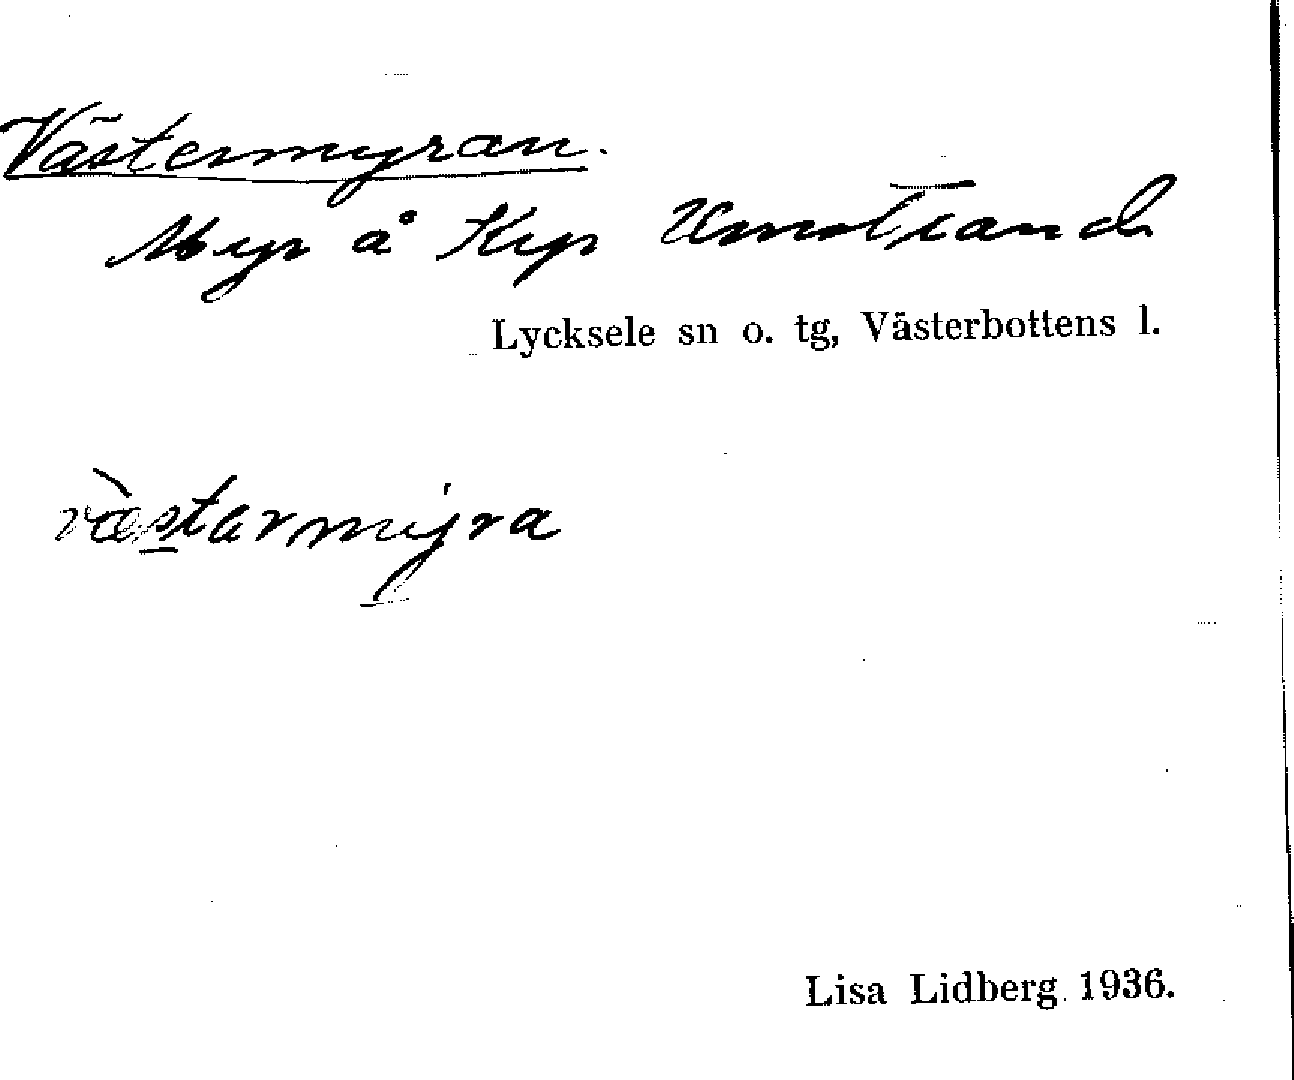 Västermyran.
Myr å Kyp Umstrand
Lycksele sn o. tg, Västerbottens l.
væstarmyra
Lisa Lidberg 1936.